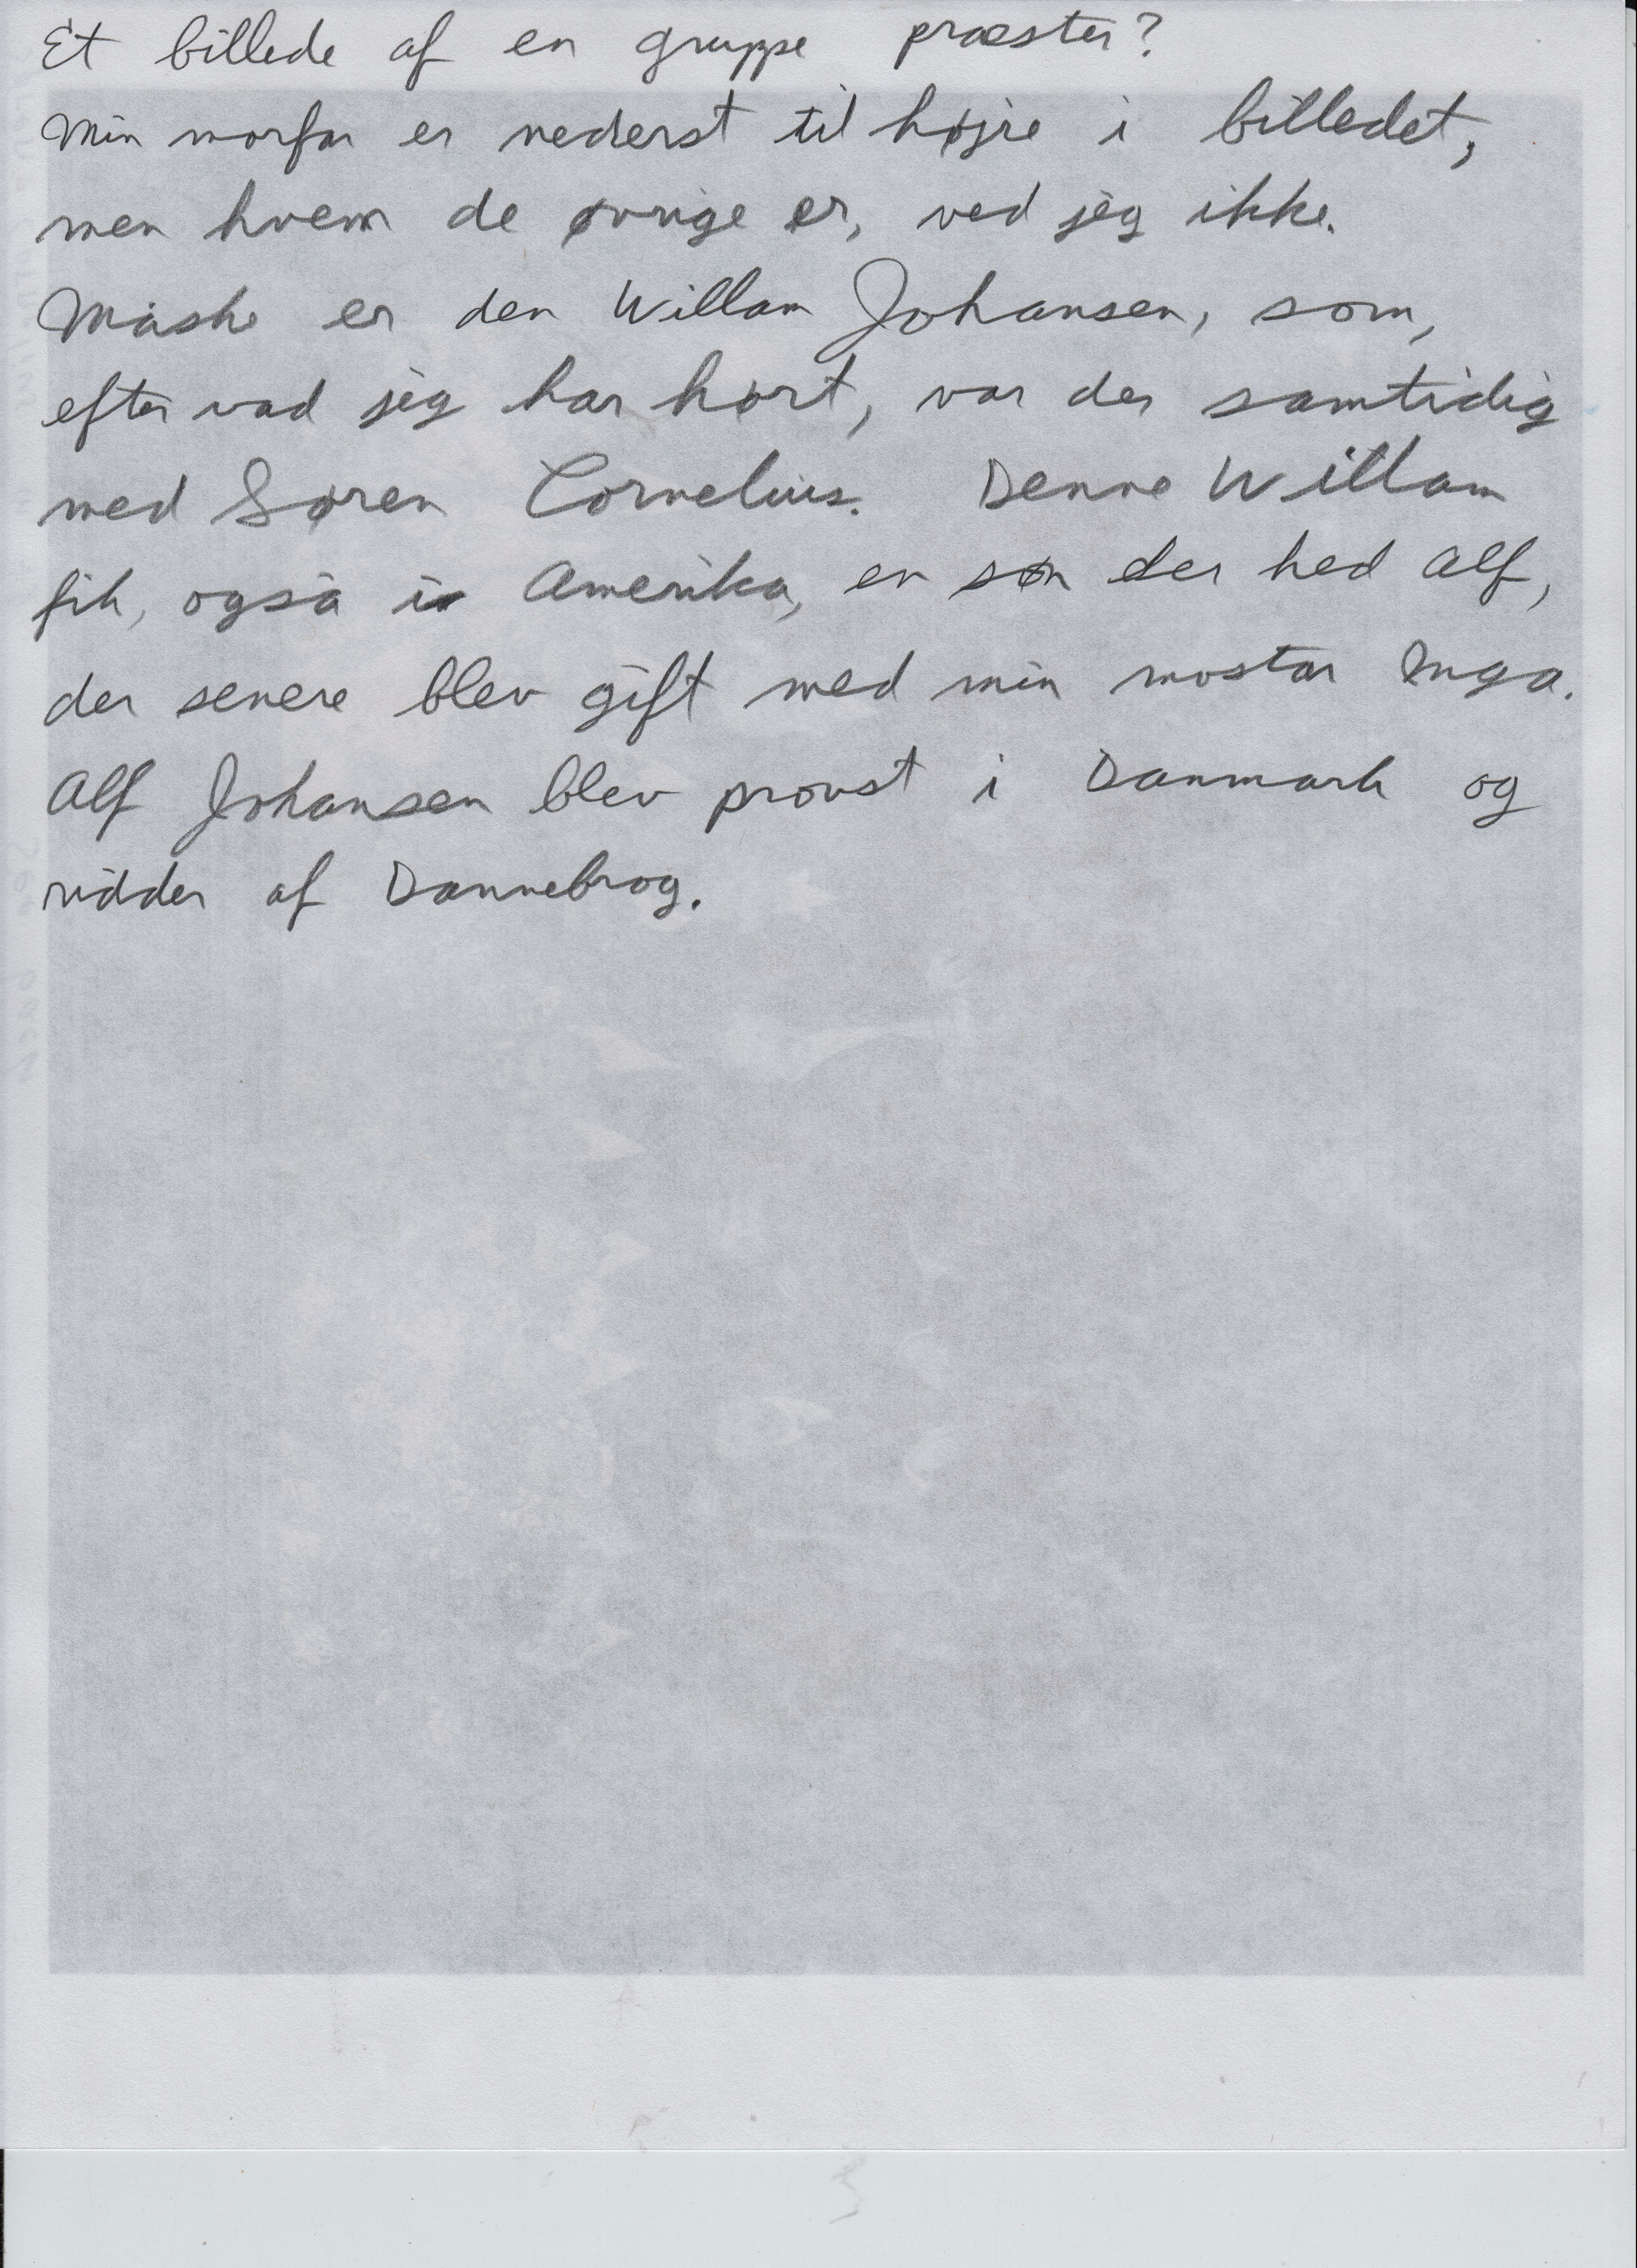 Et billede af en gruppe præster?
Min morfar er nederst til højre i billedet,
men hvem de øvrige er, ved jeg ikke.
Måske er den Willam Johansen, som,
efter vad jeg har hørt, var der samtidig
med Søren Cornelius. Denne Willam
fik, også i Amerika, en søn der hed Alf,
der senere blev gift med min moster Inga.
Alf Johansen blev provst i Danmark og
ridder af Dannebrog.